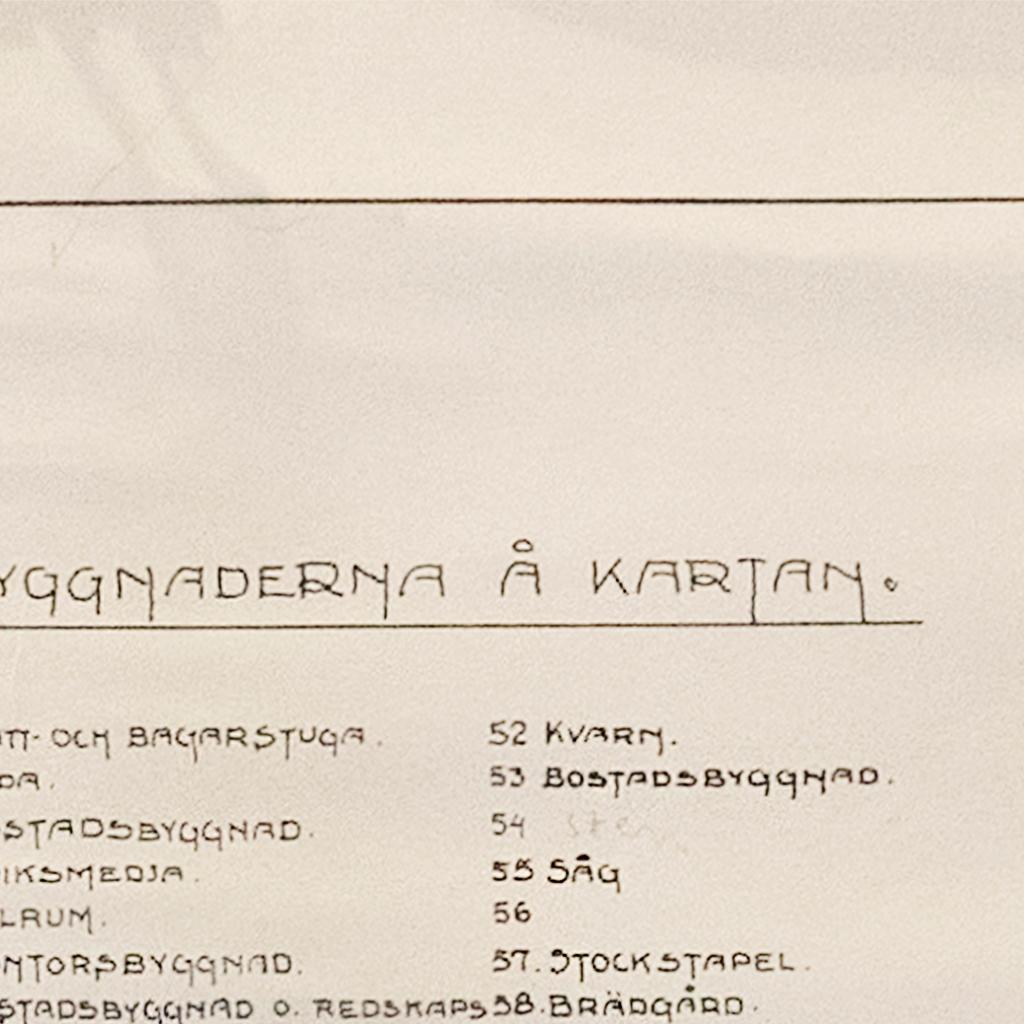 YGGNADERNA Å KARTAN.
TT-OCH BAGARSTUGA.
DA.
STADSBYGGNAD.
IKSMEDJA.
LRUM.
NTORSBYGGNAD.
STADSBYGGNAD O. REDSKAPS
52 KVARN.
53 BOSTADSBYGGNAD.
54
55 SÅG
56
57. STOCKSTAPEL.
58. BRÄDGÅRD.